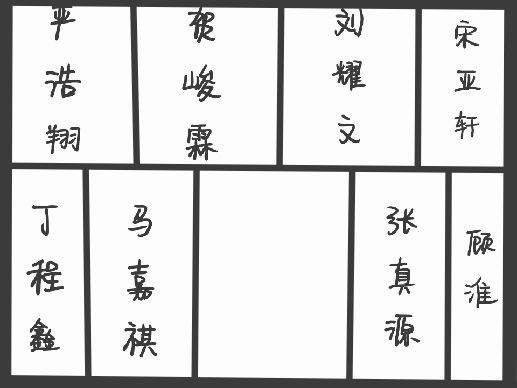 严浩翔
贺峻霖
刘耀文
宋亚轩
丁程鑫
马嘉祺
张真源
顾淮